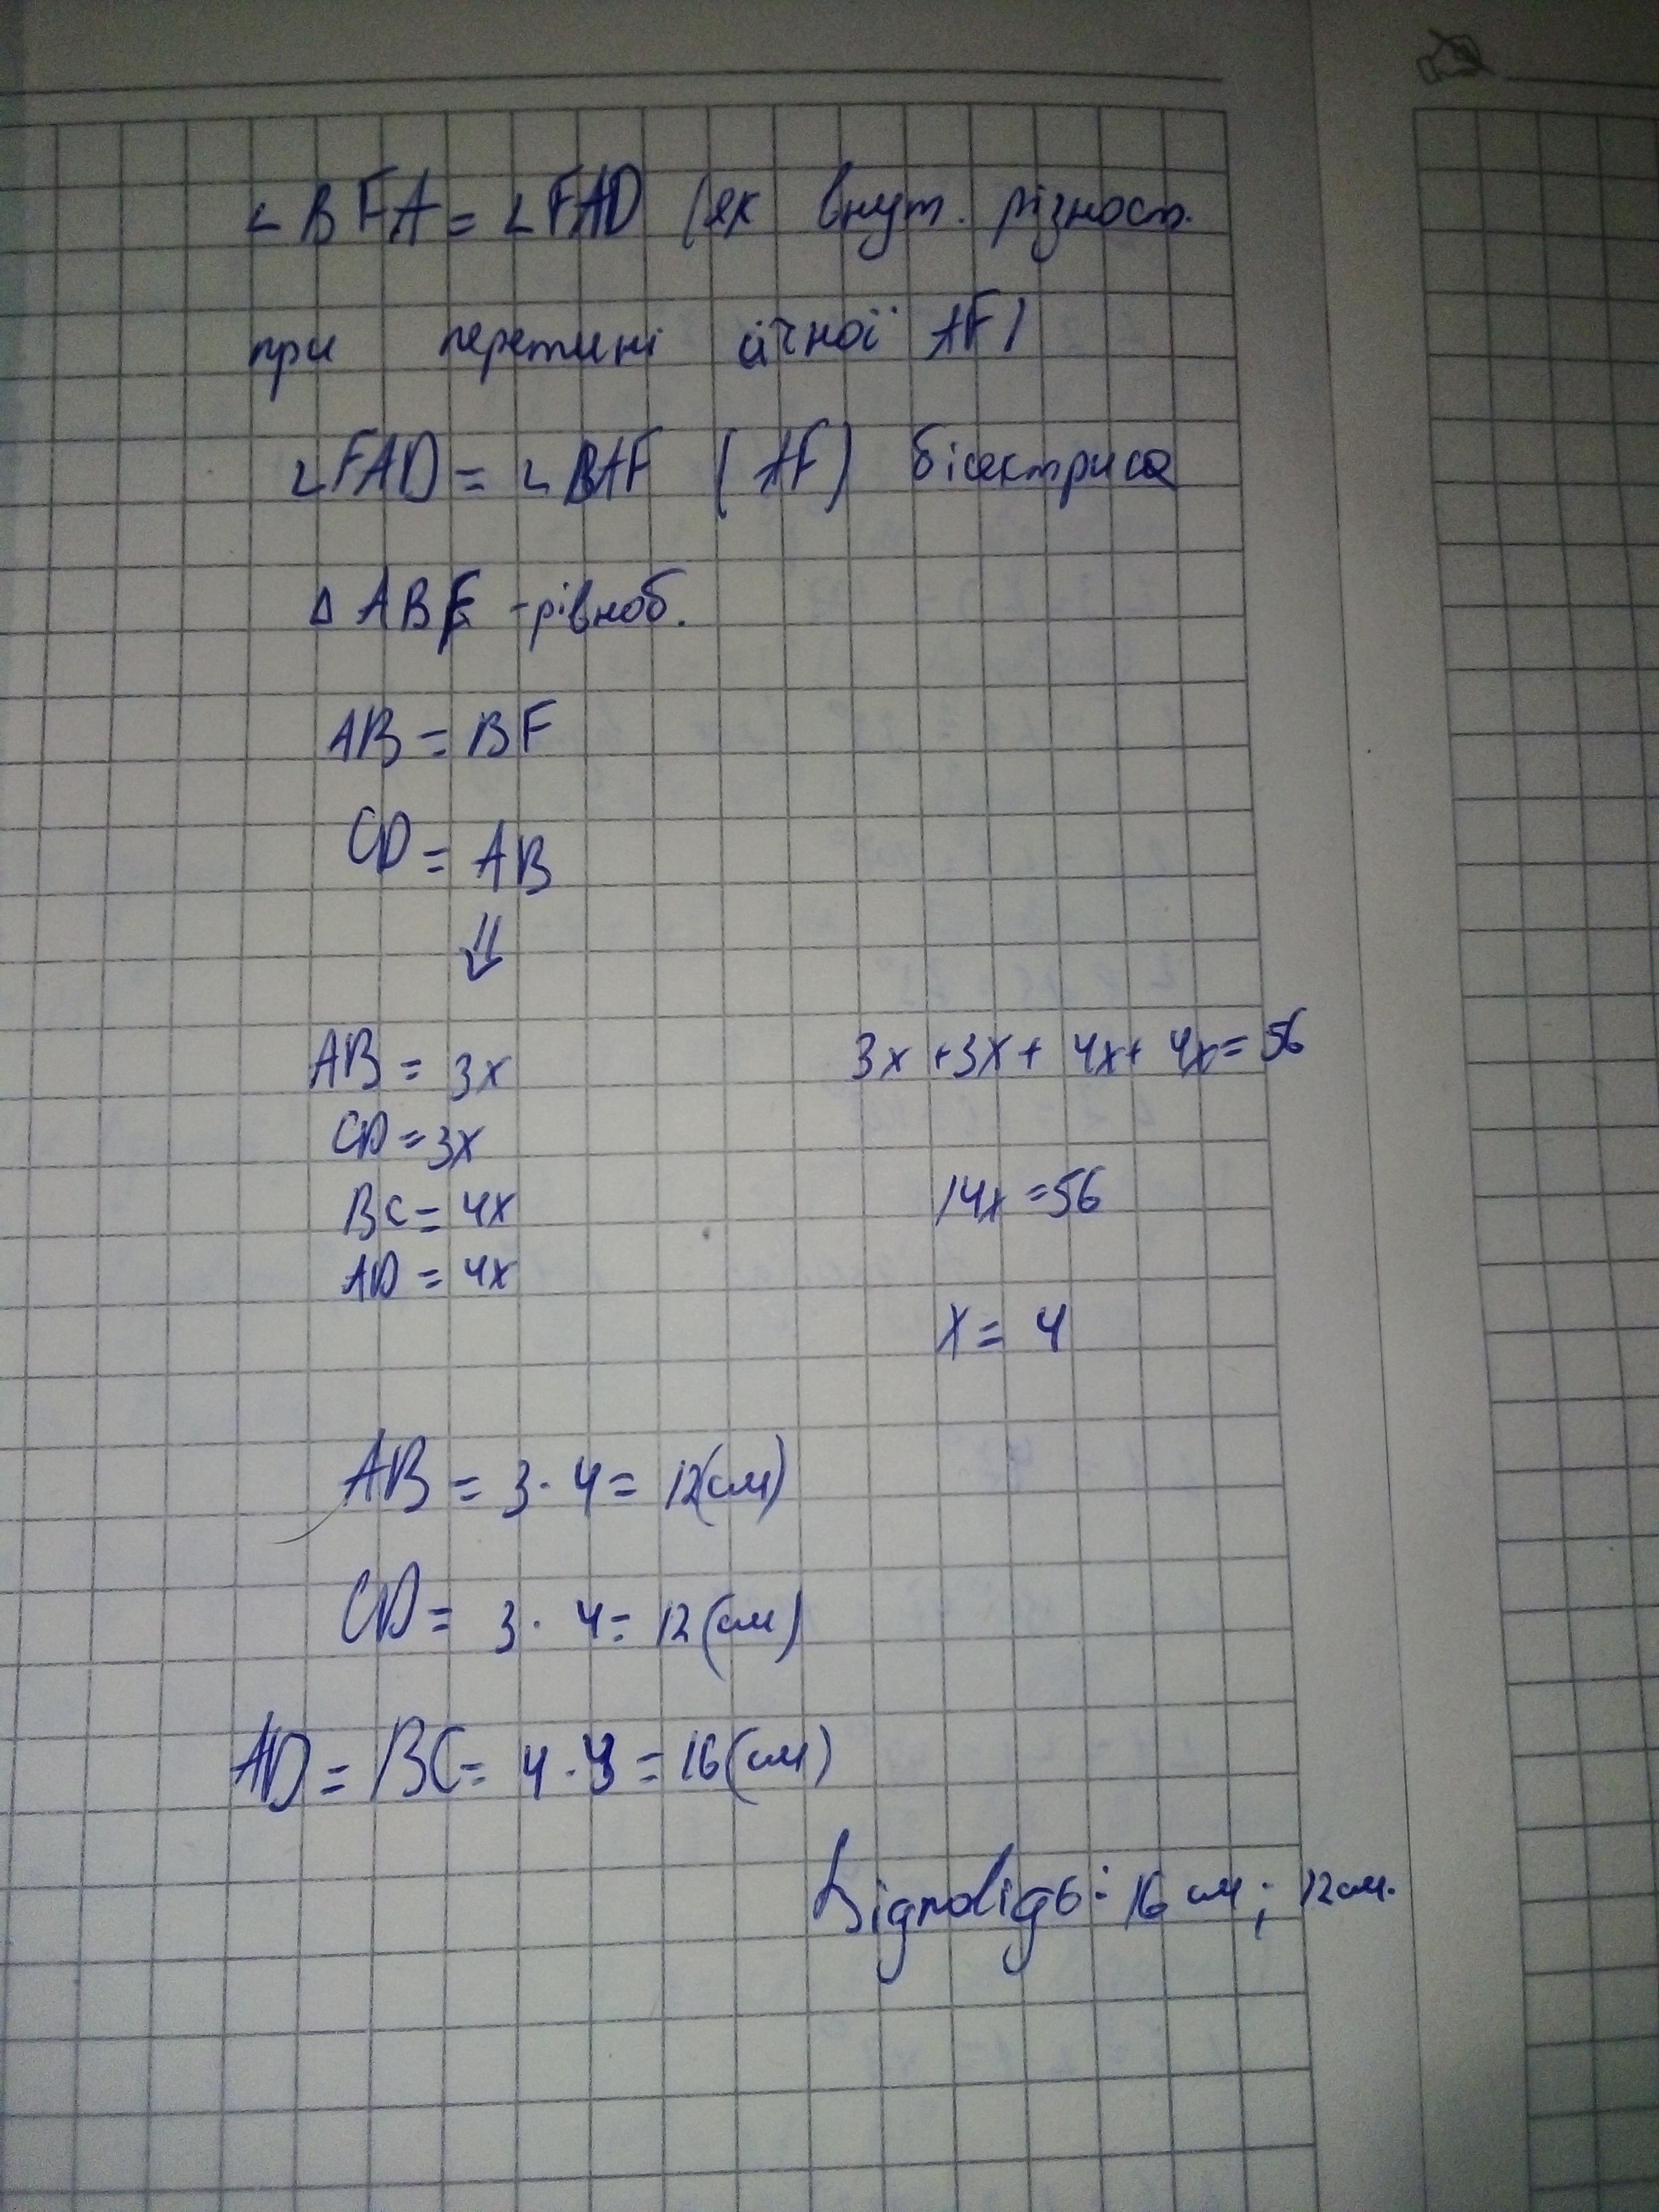 ∠BFA = ∠FAD (як внут. різност.
при перетині січної AF)
∠FAD = ∠BAF (AF) бісектриса
Δ ABF - рівноб.
AB = BF
CD = AB
⇓
AB = 3x
3x + 3x + 4x + 4x = 56
CD = 3x
BC = 4x
14x = 56
AD = 4x
x = 4
AB = 3 · 4 = 12(см)
CD = 3 · 4 = 12(см)
AD = BC = 4 · 4 = 16(см)
Відповідь: 16 см; 12см.